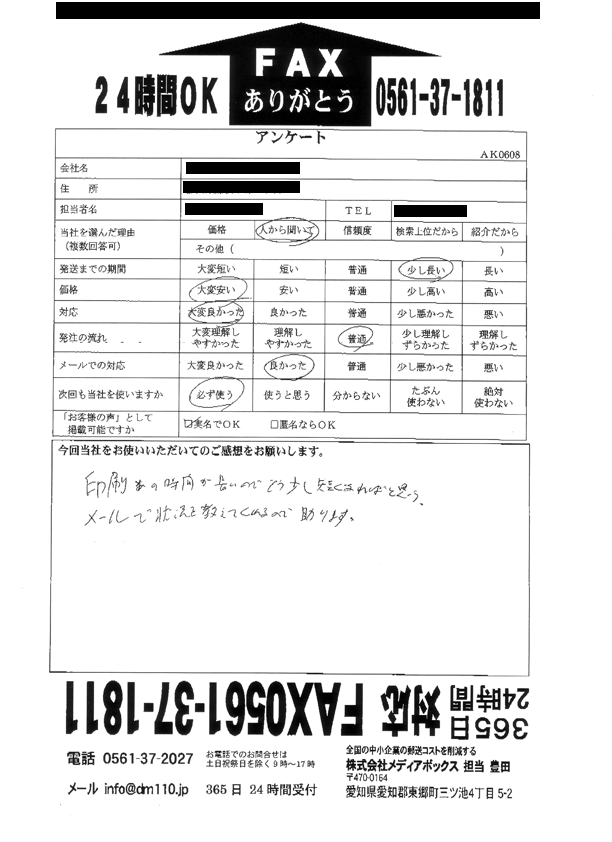 FAX
ありがとう
24時間OK
0561-37-1811
アンケート
AK0608
会社名
住　所
担当者名 TEL
当社を選んだ理由
（複数回答可）
価格 人から聞いて 信頼度 検索上位だから 紹介だから
その他（ ）
発送までの期間 大変短い 短い 普通 少し長い 長い
価格 大変安い 安い 普通 少し高い 高い
対応 大変良かった 良かった 普通 少し悪かった 悪い
発注の流れ 大変理解しやすかった 理解しやすかった 普通 少し理解しずらかった 理解しずらかった
メールでの対応 大変良かった 良かった 普通 少し悪かった 悪い
次回も当社を使いますか 必ず使う 使うと思う 分からない たぶん使わない 絶対使わない
「お客様の声」として
掲載可能ですか
☑実名でOK □匿名ならOK
今回当社をお使いいただいてのご感想をお願いします。
印刷の時間が長いのでもう少し短くなればと思う。
メールで状況を教えてくれるので助ります。
365日
24時間
対応 FAX0561-37-1811
電話 0561-37-2027
お電話でのお問合せは
土日祝祭日を除く9時～17時
メール info@dm110.jp 365日24時間受付
全国の中小企業の郵送コストを削減する
株式会社メディアボックス 担当 豊田
〒470-0164
愛知県愛知郡東郷町三ツ池4丁目5-2